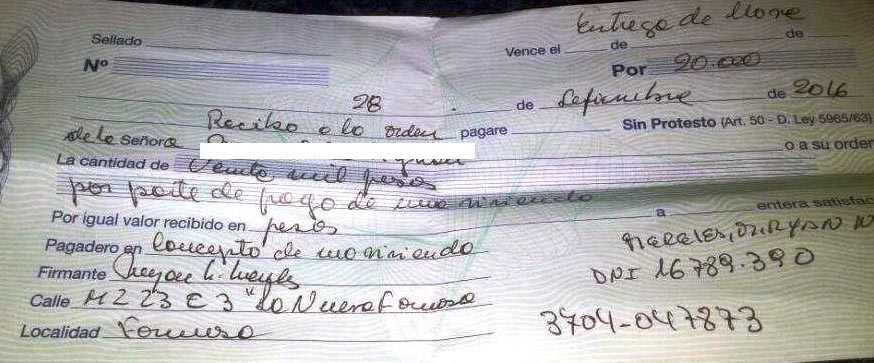 Entrega de llave
Sellado Vence el de de
Nº Por 20.000
28 de Setiembre de 2016
Recibo a la orden pagare Sin Protesto (Art. 50 - D. Ley 5965/63)
de la Señora o a su orden
La cantidad de Veinte mil pesos
por parte de pago de una vivienda
a entera satisfac
Por igual valor recibido en pesos
Pagadero en Concepto de una vivienda
Firmante
DNI 16789.390
Calle MZ 23 C 3 "La Nueva Formosa
3704-047873
Localidad Formosa